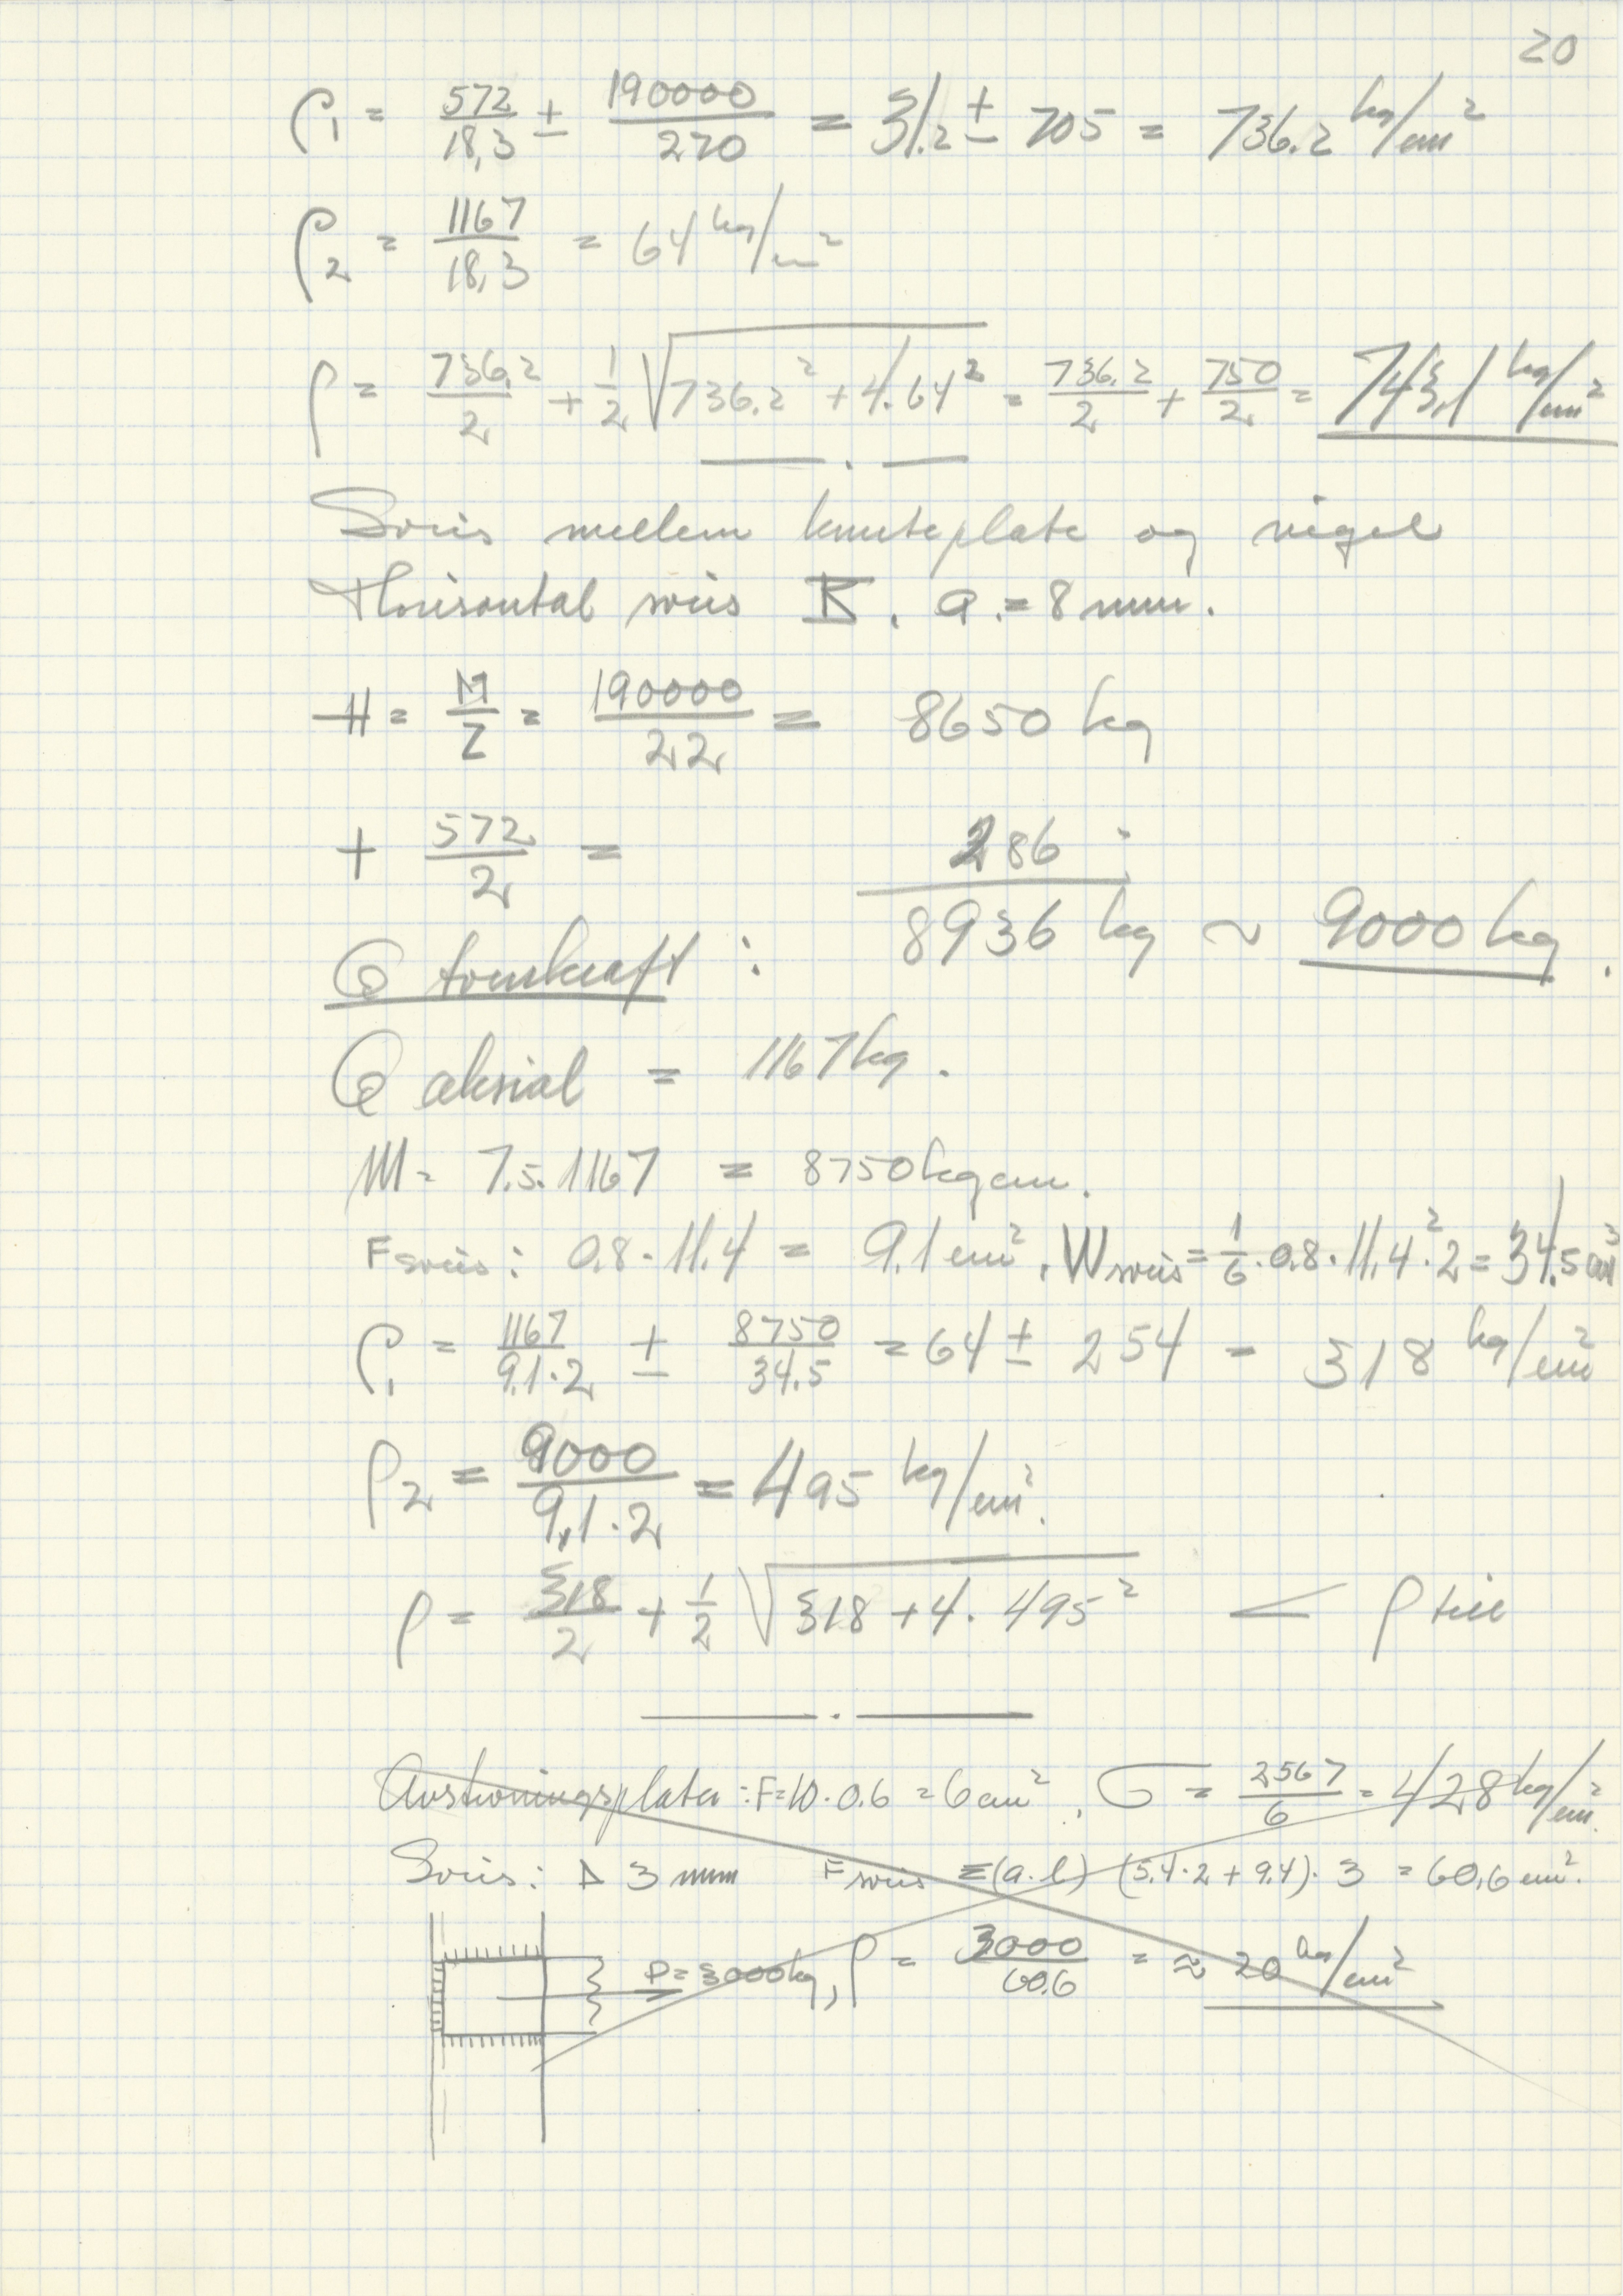 20
ρ₁ = 572/18,3 ± 190000/270 = 31.2 ± 705 = 736.2 kg/cm²
ρ₂ = 1167/18,3 = 64 kg/cm²
ρ = 736.2/2 + 1/2 √(736.2² + 4.64²) = 736.2/2 + 750/2 = 743,1 kg/cm²
Sveis mellem knuteplate og rigel
Horisontal sveis . a. = 8 mm.
H = M/Z = 190000/22 = 8650 kg
+ 572/2 = 286 "
8936 kg ~ 9000 kg.
Q :
Q aksial = 1167 kg.
M = 7.5.1167 = 8750 kgcm.
Fsveis: 0.8 · 11.4 = 9.1 cm², Wsveis = 1/6 · 0.8 · 11.4² · 2 = 34.5 cm³
ρ₁ = 1167/9.1·2 ± 8750/34.5 = 64 ± 254 = 318 kg/cm²
ρ₂ = 9000/9,1·2 = 495 kg/cm².
ρ = 318/2 + 1/2 √(318 + 4. 495²) < ρ till
Avstivningsplater: F=10·0.6 = 6 cm², σ = 2567/6 = 428 kg/cm².
Sveis: △ 3 mm Fsveis = (a.l) (5.4·2 + 9.4)· 3 = 60,6 cm².
P = 3000 kg, ρ = 3000/60.6 = ≈ 20 kg/cm²